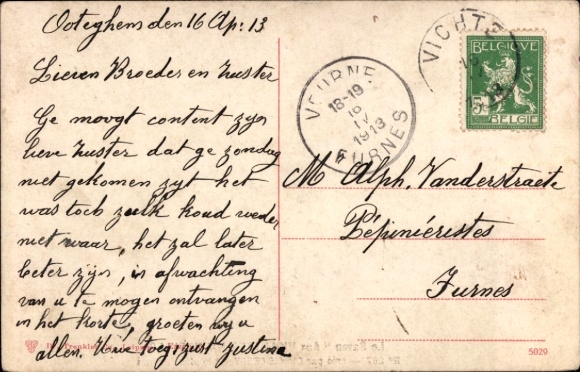 Ooteghem den 16 Ap: 13
Lieven Broeder en zuster
Ge moogt content zyn
lieve zuster dat ge zondag
niet gekomen zyt het
was toch zulk koud weder
niet waar, het zal later
beter zijn, in afwachting
van u te mogen ontvangen
in het korte, groeten wy u
allen. Uwe toegi zust Justina
VEURNE
18-19
16
IV
1913
FURNES
VICHTE
BELGIQUE
5
BELGIE
M Alph. Vanderstraete
Pépiniéristes
Furnes
5029